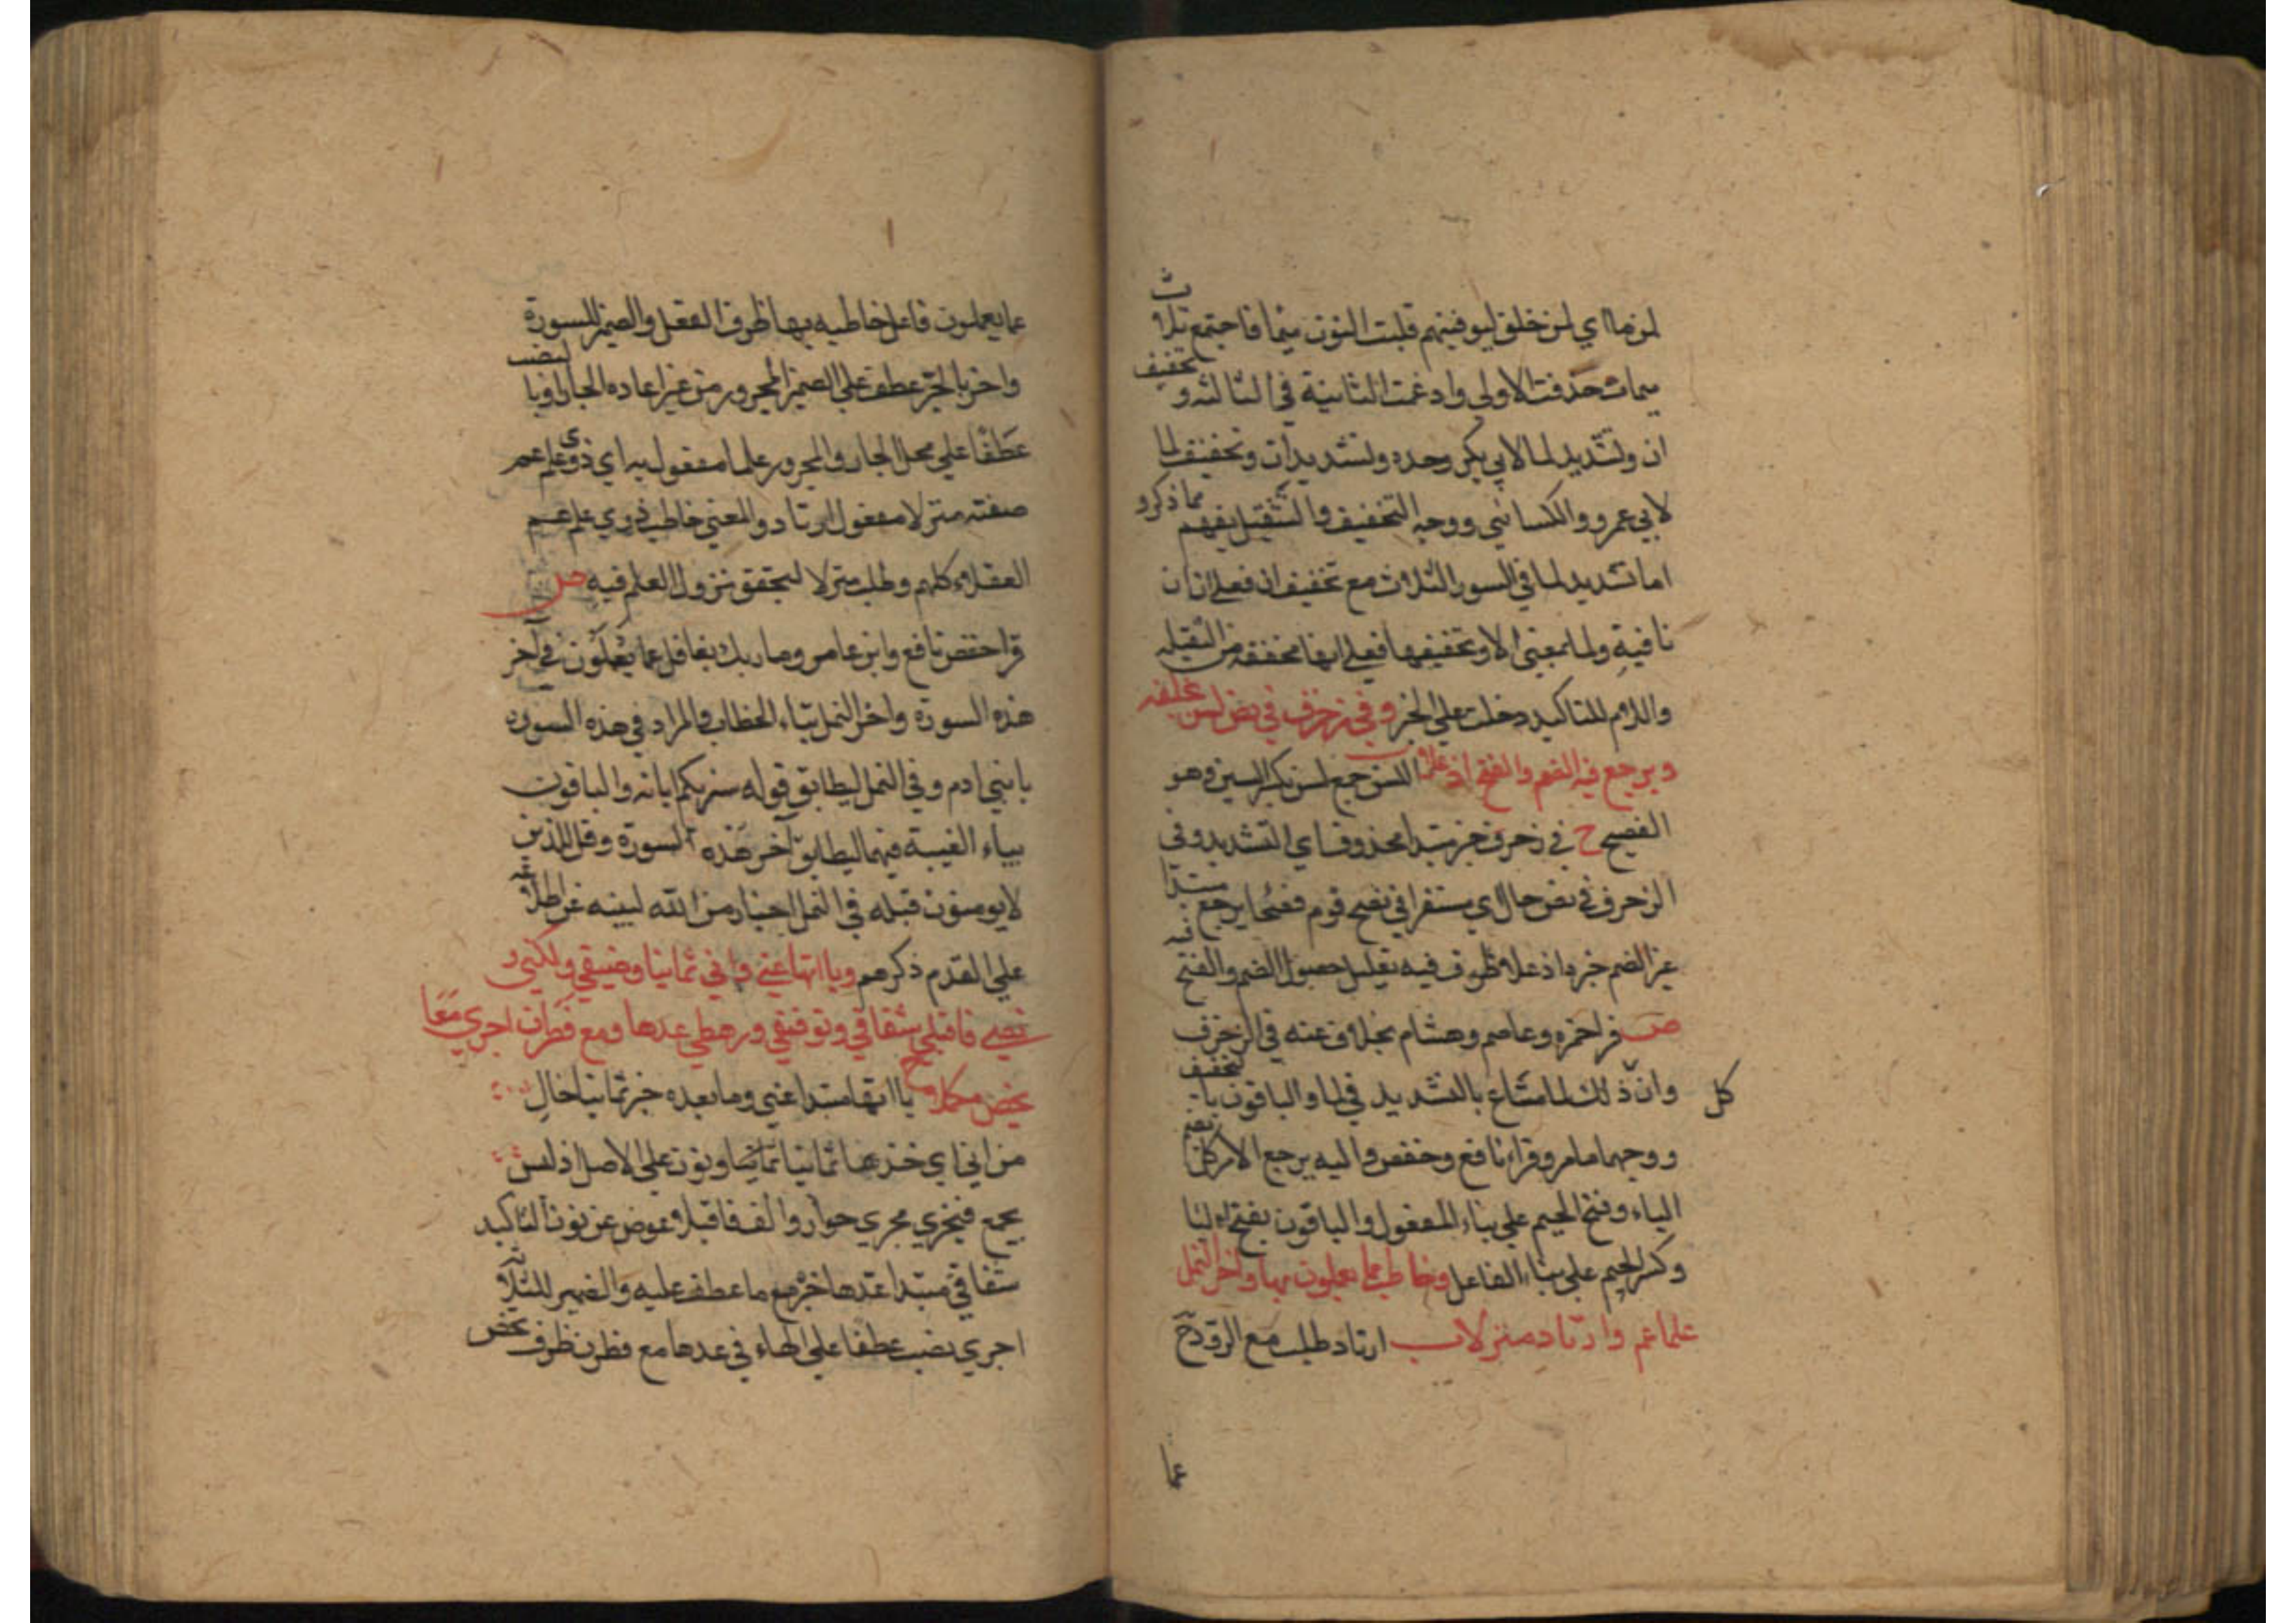 لمن ما اي لمن خلق ليوفينهم قلبت النون ميما فاجتمع ثلاث
ميمات حذفت الاولى وادغمت الثانية في الثالثة وتخفيف
ان وتشديد لما لابي بكر وحده وتشديد ان وتخفيف لما
لابي عمرو والكسائي ووجه التخفيف والتثقيل يفهم مما ذكرو
اما تشديد لما في السور الثلاث مع تخفيف ان فعلي ان ان
نافية ولما بمعني الا وتخفيفها فعلي انها مخففة من الثقيله
واللام للتاكيد دخلت علي الخبر وفي زخرف في نص لسن بخلفه
ويرجع فيه الضم والفتح اذ علا ب اللسن جمع لسن بكسر السين وهو
الفصيح ح في زخرف خبر مبتدا محذوف اي التشديد وفي
الزخرف في نص حال اي مستقرا في نص قوم فصحا يرجع مبتدا
عز الضم خبر اذ علا ظرف فيه تعليل حصول الضم والفتح فيه
ص قرا حمزه وعاصم وهشام بخلاف عنه في الزخرف
وان كل ذلك لما متاع بالتشديد في لما والباقون بالتخفيف
ووجههما مامر وقرا نافع وحفص واليه يرجع الامر كله بضم
الياء وفتح الجيم علي بناء المفعول والباقون بفتح اليا
وكسر الجيم علي بناء الفاعل وخاطب عما يعملون بها واخر النمل
علما عم وارتاد منزلا ب ارتاد طلب مع الرود ح
عما
عما يعملون فاعل خاطب به بها ظرف الفعل والضمير للسورة
واخر بالجر عطف علي الضمير المجرور من غير اعاده الجار او بالنصب
عطفا علي محل الجار والمجرور علما مفعول به اي ذوي علم عم
صفته منزلا مفعول ارتاد والمعني خاطب ذوي علم عم
العقلاء كلهم وطلب منزلا ليتحقق نزول العلم فيه ص
قرا حفص نافع وابن عامر وما ربك بغافل عما يعملون في آخر
هذه السورة واخر النمل بتاء الخطاب والمراد في هذه السورة
يا بني ادم وفي النمل ليطابق قوله سنريكم اياته والباقون
بياء الغيبة فيهما ليطابق آخر هذه السورة وقل للذين
لا يومنون قبله في النمل اخبار من الله لبينه عن اطلاعه
علي القدم ذكرهم ويا اتها عني واني ثمانيا وضيفي ولكني و
نصحي فاقبلا شقاقي وتوفيقي ورهطي عدها ومع فطرن اجري معا
تحص مكملا ح يا اتها مبتدا عني وما بعده خبر ثمانيا حال
من اني اي خذها ثمانيا ثمانيا ونون علي الاصل اذ ليس
بجمع فيجري مجري جوار والف فاقبلا عوض عن نون التاكيد
شقاقي مبتدا عدها خبر مع ما عطف عليه والضمير للثلاثه
اجري نصب عطفا علي الهاء في عدها مع فطرن ظرف تحص